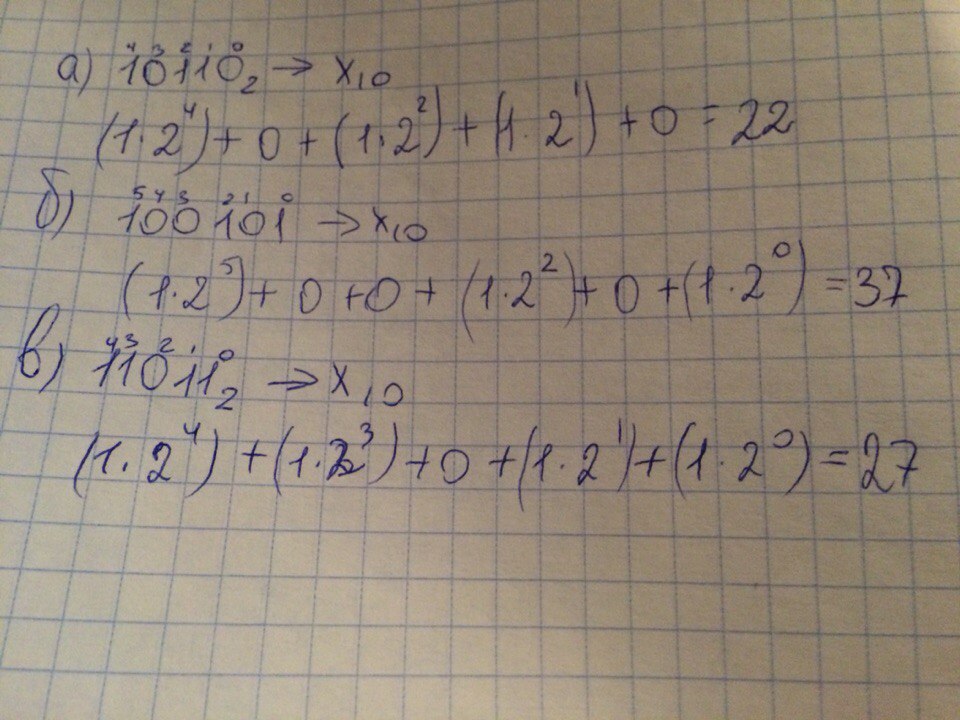 а) 1⁴0³1²1¹0⁰₂ → x₁₀
(1·2⁴) + 0 + (1·2²) + (1·2¹) + 0 = 22
б) 1⁵0⁴0³1²0¹1⁰ → x₁₀
(1·2⁵) + 0 + 0 + (1·2²) + 0 + (1·2⁰) = 37
в) 1⁴1³0²1¹1⁰₂ → x₁₀
(1·2⁴) + (1·2³) + 0 + (1·2¹) + (1·2⁰) = 27